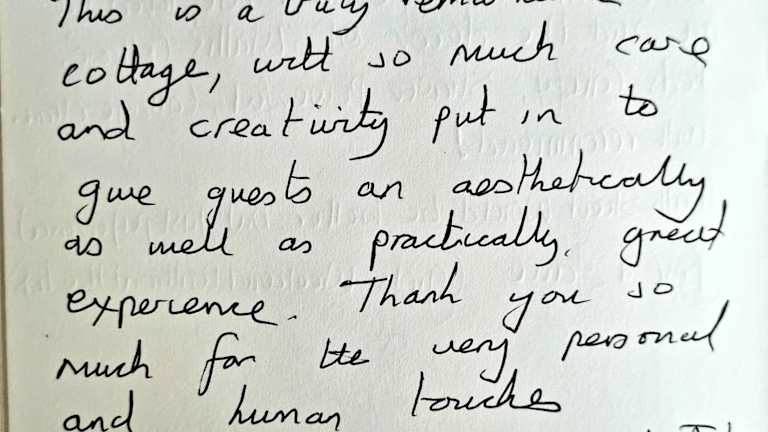 This is a truly
cottage, with so much care
and creativity put in to
give guests an aesthetically
as well as practically, great
experience. Thank you so
much for the very personal
and human touches